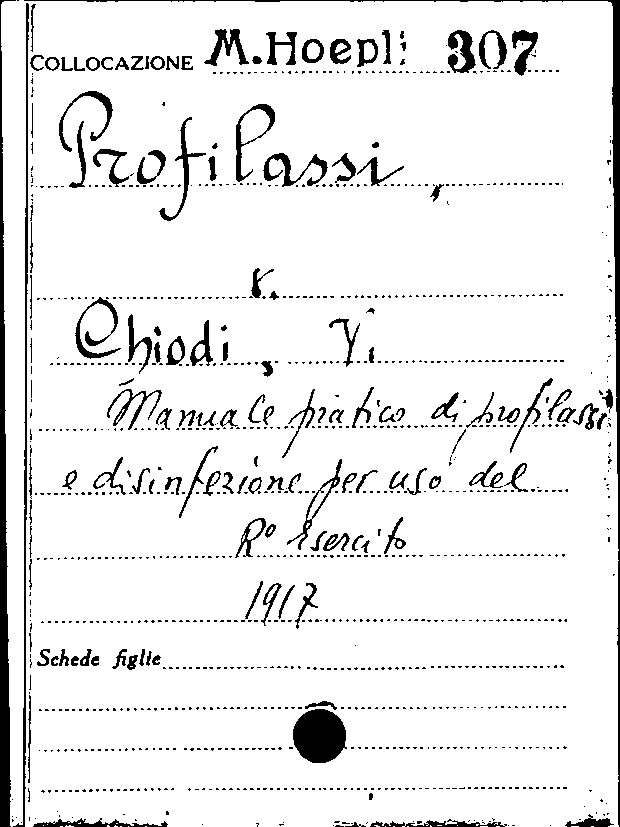 COLLOCAZIONE M.Hoepli 307
Profilassi,
v.
Chiodi, V.
Manuale pratico di profilassi
e disinfezione per uso del
Rº Esercito
1917
Schede figlie